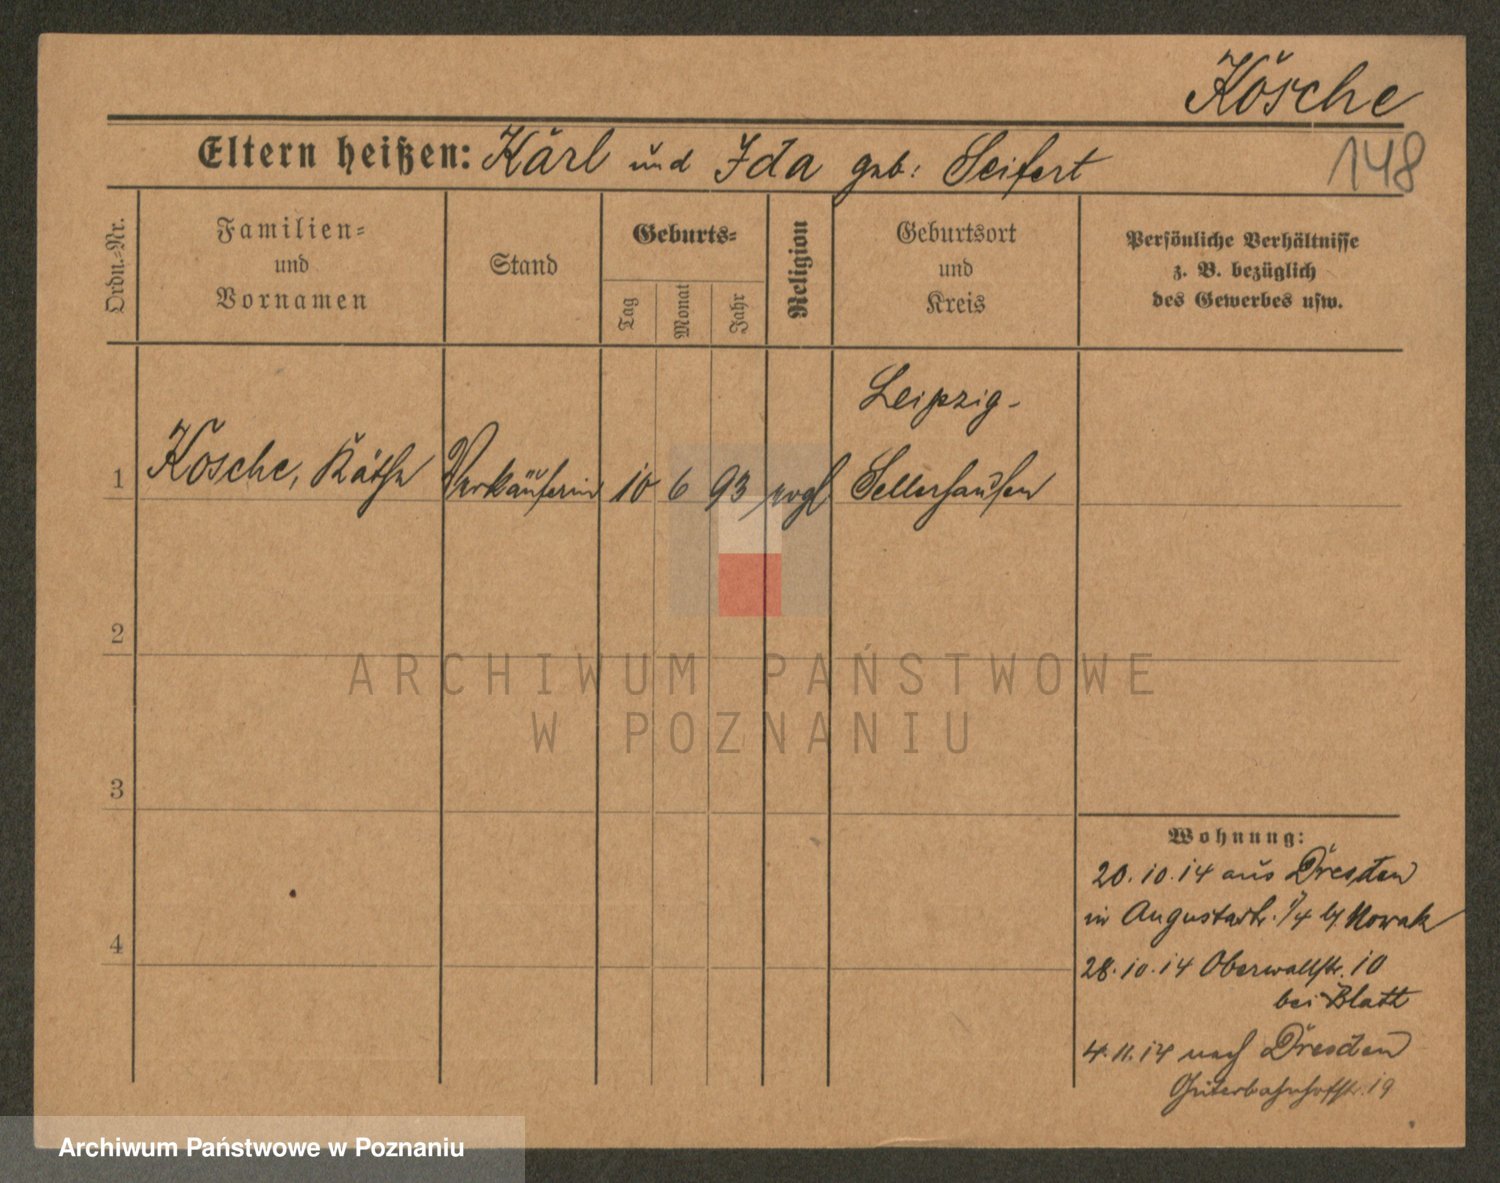 Kösche
148
Eltern heißen: Karl und Ida geb: Seifert
Ordn.-Nr.
Familien-
und
Vornamen
Stand
Geburts-
Tag
Monat
Jahr
Religion
Geburtsort
und
Kreis
Persönliche Verhältnisse
z. B. bezüglich
des Gewerbes usw.
1
Kösche, Käthe
Verkäuferin
10
6
93
evgl
Leipzig-
Sellerhausen
2
3
4
Wohnung:
20.10.14 aus Dresden
in Augustastr. 1/4 b/ Nowak
28.10.14 Oberwallstr. 10
bei Blatt
4.11.14 nach Dresden
Güterbahnhofstr. 19
ARCHIWUM PAŃSTWOWE
W POZNANIU
Archiwum Państwowe w Poznaniu